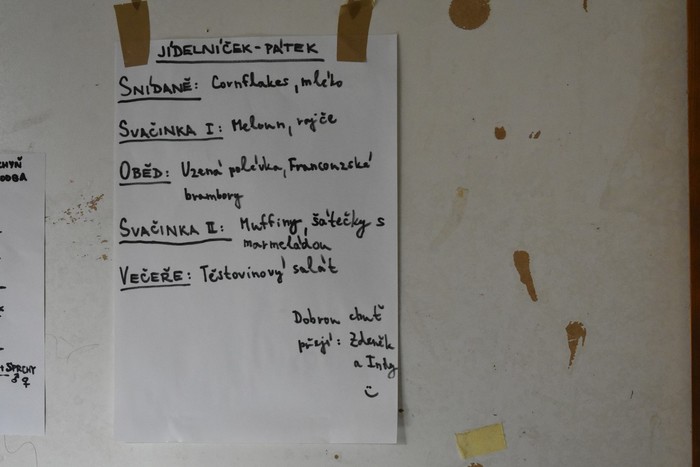 JÍDELNÍČEK - PÁTEK
SNÍDANĚ: Cornflakes, mléko
SVAČINKA I: Meloun, rajče
OBĚD: Uzená polévka, Francouzské
brambory
SVAČINKA II: Muffiny, šátečky s
marmeládou
VEČEŘE: Těstovinový salát
Dobrou chuť
přejí: Zdeněk
a Indy
SPRCHY